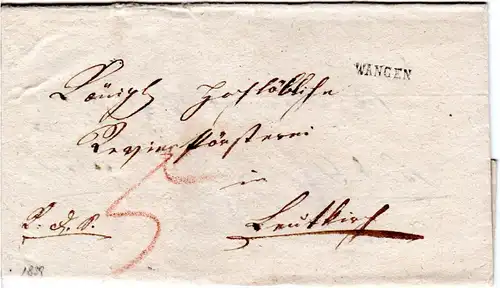 WANGEN
Königl Hochlöbliche
Revierförsterei
in
Leutkirch
R. d. S.
5
1828